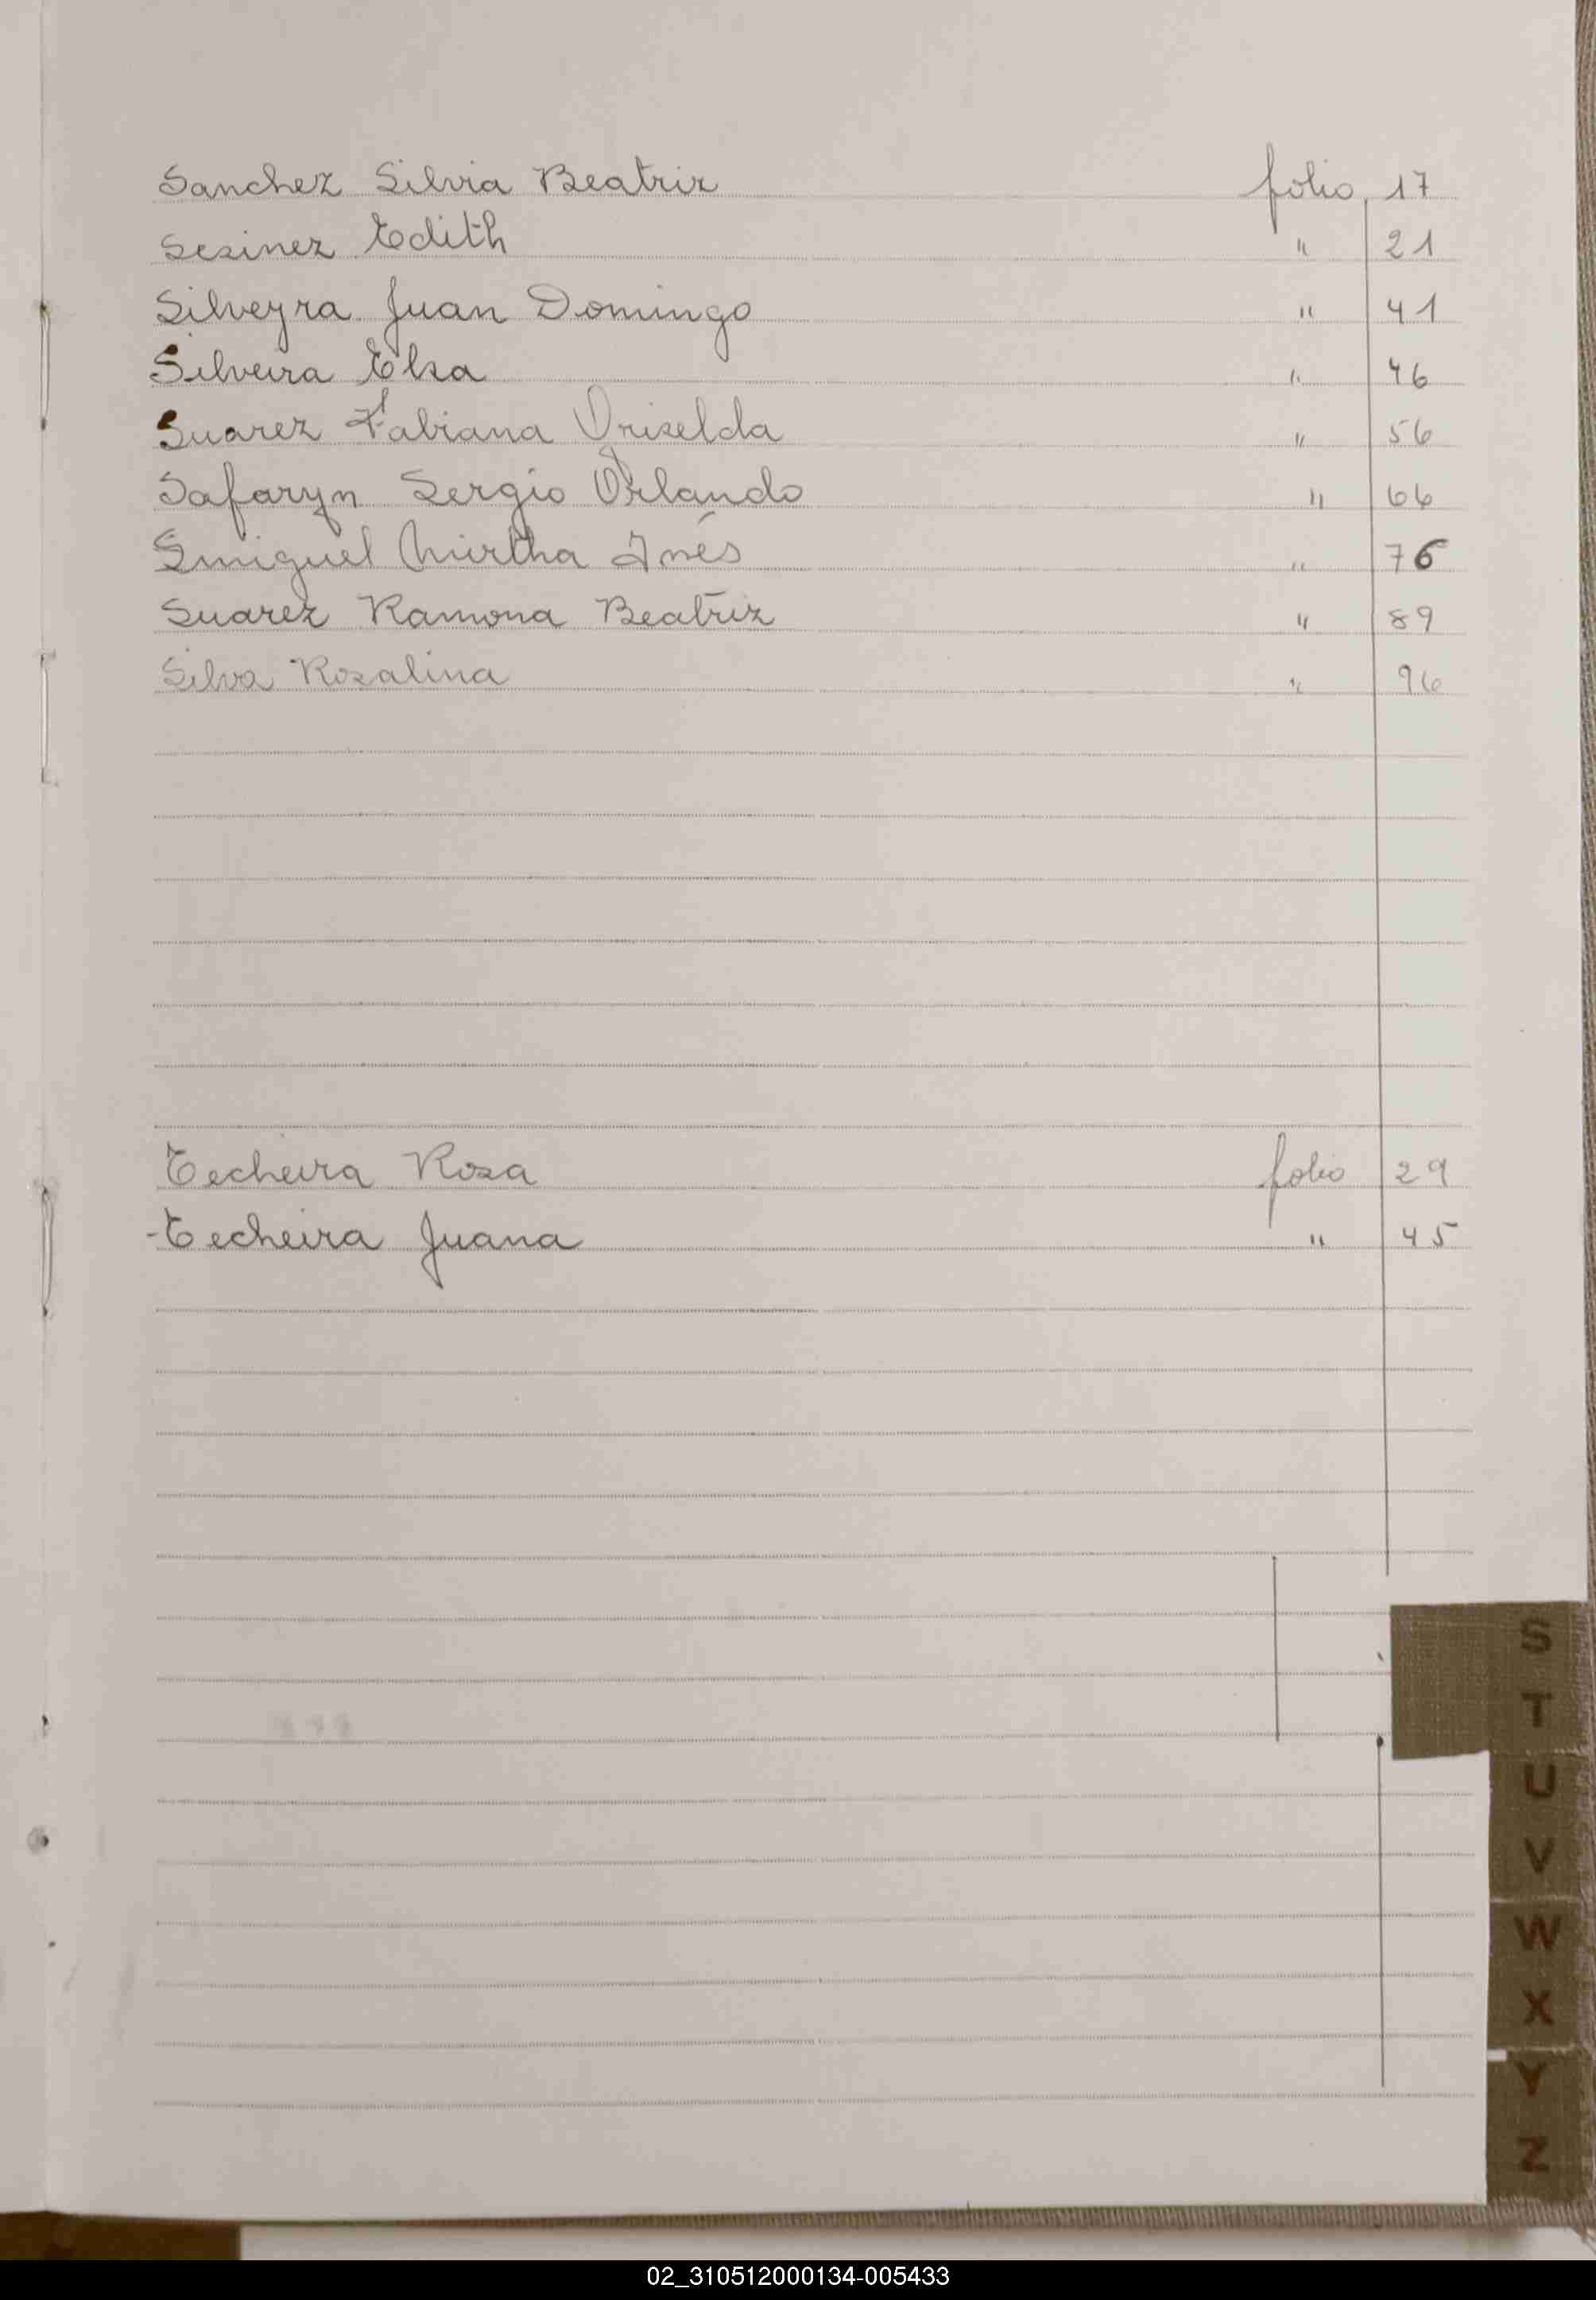 Sanchez Silvia Beatriz folio 17
Sesinez Edith " 21
Silveyra Juan Domingo " 41
Silveira Elsa " 46
Suarez Fabiana Griselda " 56
Safaryn Sergio Orlando " 66
Smiguel Mirtha Inés " 76
Suarez Ramona Beatriz " 89
Silva Rosalina " 96
Techeira Rosa folio 29
-Techeira Juana " 45
S
T
U
V
W
X
Y
Z
02_310512000134-005433